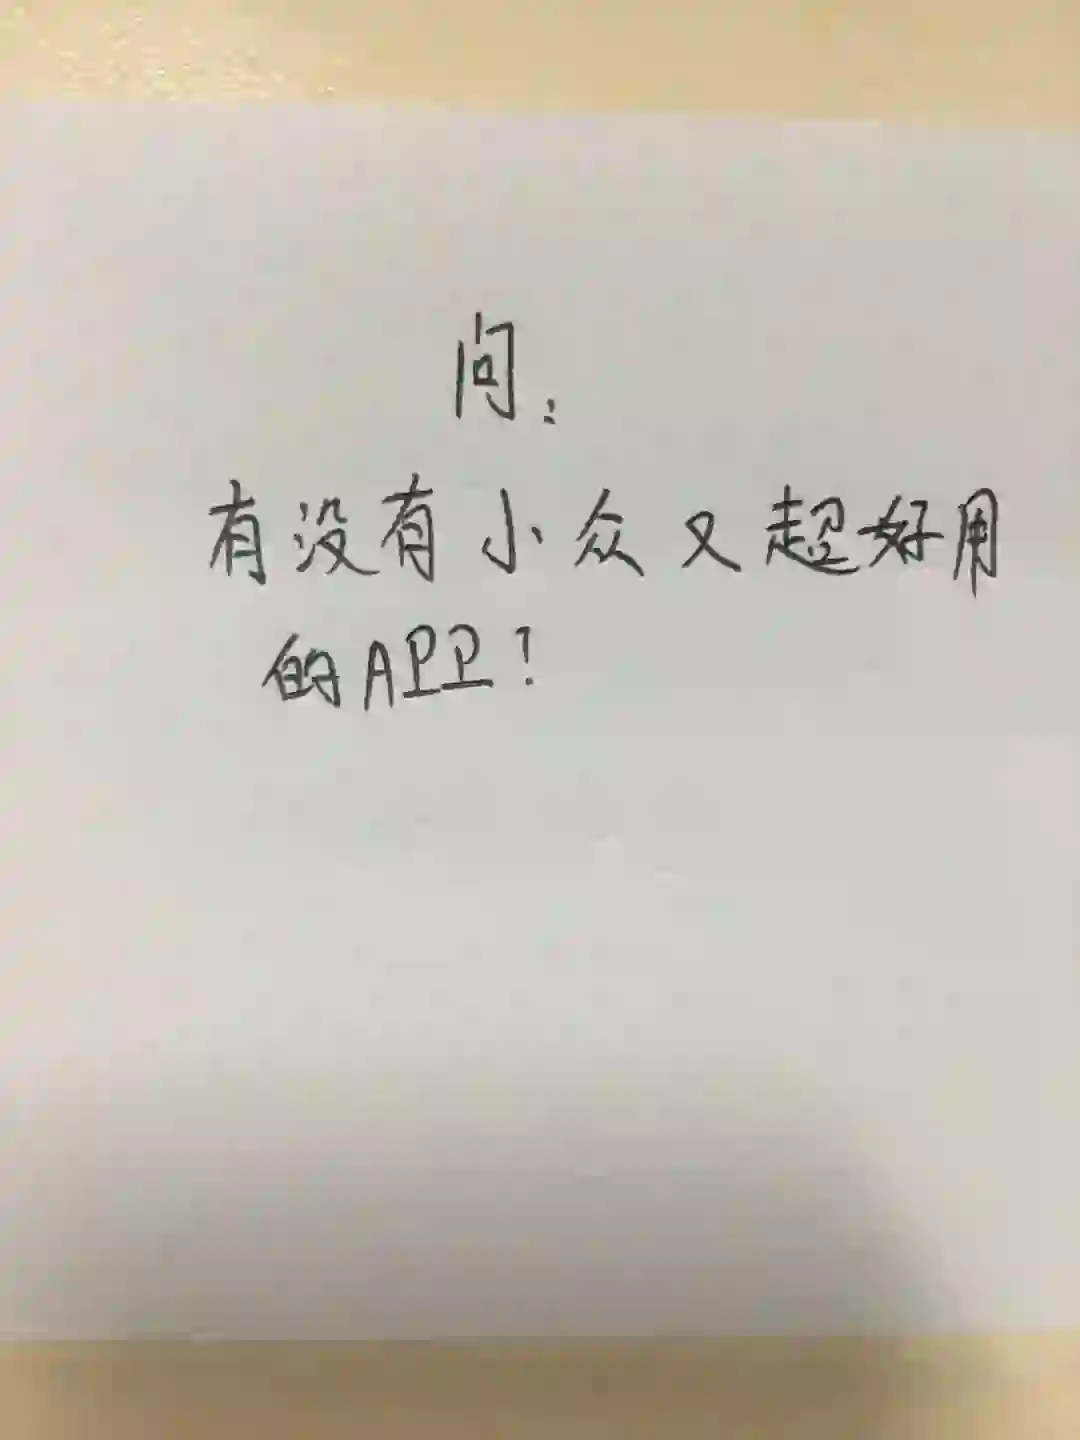 问:
有没有小众又超好用
的APP!